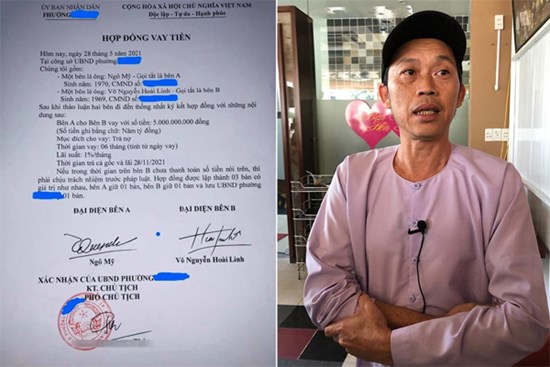 ỦY BAN NHÂN DÂN
PHƯỜNG
CỘNG HÒA XÃ HỘI CHỦ NGHĨA VIỆT NAM
Độc lập - Tự do - Hạnh phúc
HỢP ĐỒNG VAY TIỀN
Hôm nay, ngày 28 tháng 5 năm 2021
Tại công sở UBND phường
Chúng tôi gồm:
- Một bên là ông: Ngô Mỹ - Gọi tắt là bên A
Sinh năm: 1970, CMND số:
- Một bên là ông: Võ Nguyễn Hoài Linh - Gọi tắt là bên B
Sinh năm: 1969, CMND số:
Sau khi thảo luận hai bên đi đến thống nhất ký kết hợp đồng với những nội
dung sau:
Bên A cho Bên B vay với số tiền: 5.000.000.000 đồng
(Số tiền ghi bằng chữ: Năm tỷ đồng)
Mục đích cho vay: Trả nợ
Thời gian vay: 06 tháng (tính từ ngày vay)
Lãi suất: 1%/tháng
Thời gian trả cả gốc và lãi 28/11/2021
Nếu trong thời gian trên bên B chưa thanh toán số tiền nói trên, thì
phải chịu trách nhiệm trước pháp luật. Hợp đồng được lập thành 03 bản có
giá trị như nhau, bên A giữ 01 bản, bên B giữ 01 bản và lưu UBND phường
01 bản.
ĐẠI DIỆN BÊN A
ĐẠI DIỆN BÊN B
Ngô Mỹ
Võ Nguyễn Hoài Linh
XÁC NHẬN CỦA UBND PHƯỜNG
KT. CHỦ TỊCH
PHÓ CHỦ TỊCH